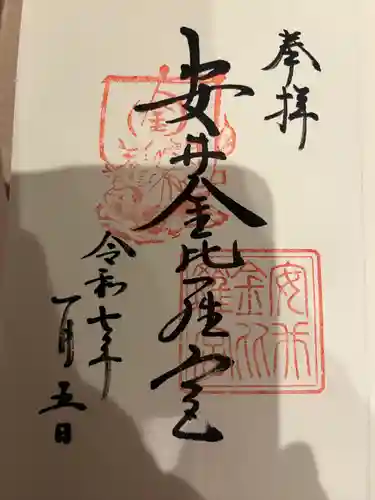 奉拝
安井金比羅宮
令和七年
一月五日
安井
金比
羅宮